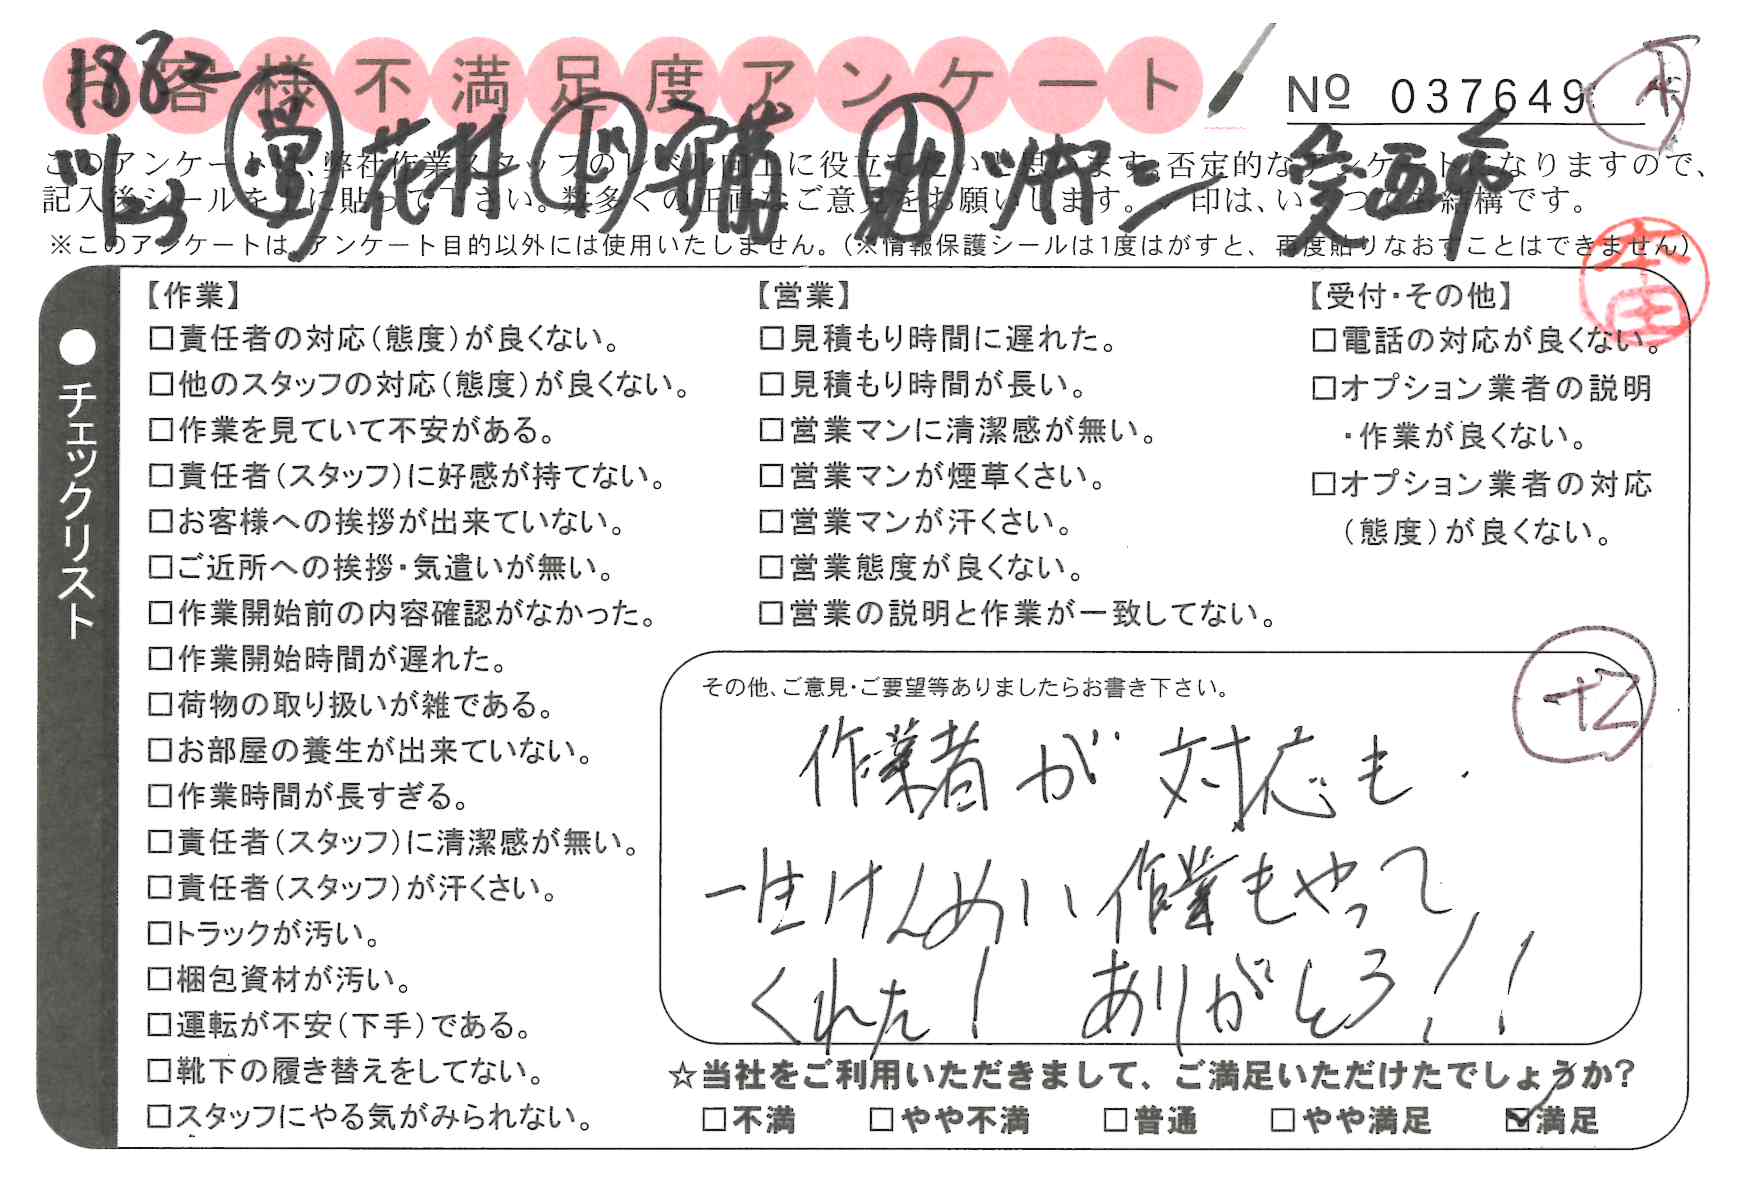 お客様不満足度アンケート
Nº 037649
1882
11/23 営 花井 ド 斉藤
このアンケートは、弊社作業スタッフのレベル向上に役立てたいと思います。否定的なアンケートになりますので、
記入後シールを上に貼って下さい。数多くの正直なご意見をお願いします。✓印は、いくつでも結構です。
※このアンケートは、アンケート目的以外には使用いたしません。(※情報保護シールは1度はがすと、再度貼りなおすことはできません)
本田
●チェックリスト
【作業】
□責任者の対応(態度)が良くない。
□他のスタッフの対応(態度)が良くない。
□作業を見ていて不安がある。
□責任者(スタッフ)に好感が持てない。
□お客様への挨拶が出来ていない。
□ご近所への挨拶・気遣いが無い。
□作業開始前の内容確認がなかった。
□作業開始時間が遅れた。
□荷物の取り扱いが雑である。
□お部屋の養生が出来ていない。
□作業時間が長すぎる。
□責任者(スタッフ)に清潔感が無い。
□責任者(スタッフ)が汗くさい。
□トラックが汚い。
□梱包資材が汚い。
□運転が不安(下手)である。
□靴下の履き替えをしてない。
□スタッフにやる気がみられない。
【営業】
□見積もり時間に遅れた。
□見積もり時間が長い。
□営業マンに清潔感が無い。
□営業マンが煙草くさい。
□営業マンが汗くさい。
□営業態度が良くない。
□営業の説明と作業が一致してない。
【受付・その他】
□電話の対応が良くない。
□オプション業者の説明
・作業が良くない。
□オプション業者の対応
(態度)が良くない。
その他、ご意見・ご要望等ありましたらお書き下さい。
作業者が対応も
一生けんめい作業もやって
くれた! ありがとう!!
☆当社をご利用いただきまして、ご満足いただけたでしょうか?
□不満 □やや不満 □普通 □やや満足 ☑満足